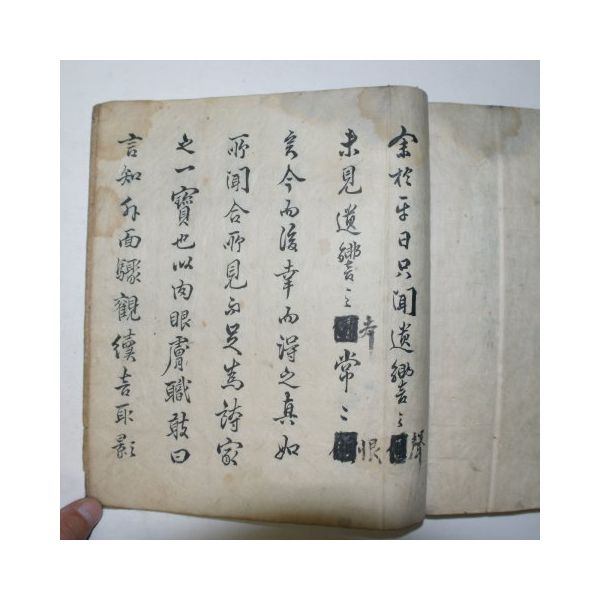 余於平日只聞遺響之聲
未見遺響之本常之恨
矣今而後幸而得之真如
所聞合所見而足為詩家
之一寶也以肉眼膚職敢曰
言知外面驟觀續吉耶影